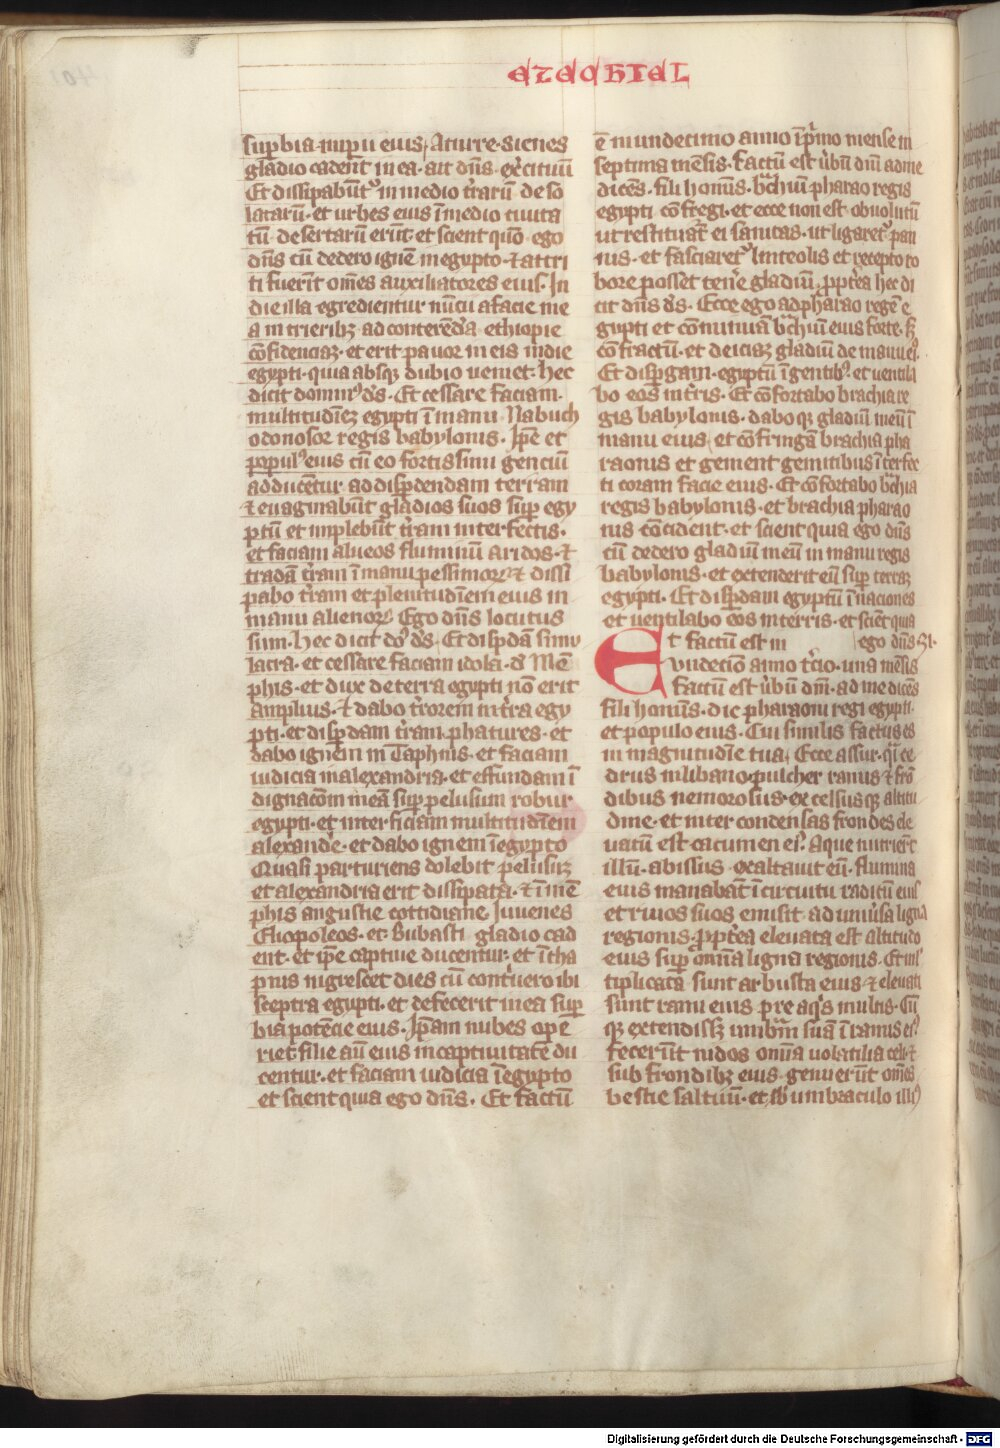 EZECHIEL
sup̄bia imp̄ii eius. A turre sienes
gladio cadent in ea. ait dn̄s ex̄cituū
Et dissipabūt᷒ in medio t̄rarū deso
latarū. et urbes eius ī medio ciuita
tū desertarū erūt. et scient quō ego
dn̄s cū dedero ignem in egypto. ⁊ attri
ti fuerīt om̄es auxiliatores eius. In
die illa egredientur nūcii a facie me
a in trierib; ad conterēdā ethiopie
cōfidenciā. et erit pauor in eis in die
egypti. quia absq; dubio ueniet. hec
dicit domin᷒ ds̄. Et cessare faciam
multitudinē egypti ī manu Nabuch
odonosor regis babylonis. Ip̄e et
popul᷒ eius cū eo fortissimi genciū
adducent̄ ad disp̄dendam terram
⁊ euaginabūt gladios suos sup̄ egy
ptū et implebūt t̄ram interfectis.
et faciam alueos fluminū aridos. ⁊
tradā t̄ram ī manu pessimoꝝ ⁊ dissi
pabo t̄ram et plenitudīem eius in
manu alienoꝝ. Ego dn̄s locutus
sum. hec dicit do᷒ ds̄. Et disp̄dā simu
lacra. et cessare faciam idola. d̄ Mē
phis. et dux de terra egypti nō erit
amplius. ⁊ dabo t̄rorem in t̄ra egy
pti. et disp̄dam t̄ram phatures. et
dabo ignem in Taphnis. et faciam
iudicia in alexandria. et effundam ī
dignacōm meā sup̄ pelusium robur
egypti. et interficiam multitudīem
alexandr̄e. et dabo ignem ī egypto
Quasi parturiens dolebit pelusiū;
et alexandria erit dissipata. ⁊ ī mē
phis angustie cottidiane. Iuuenes
Eliopoleos. et Bubasti gladio cad
ent. et ip̄e captiue ducentur. et ī tha
pnis nigrescet dies cū cont̄uero ibi
sceptra egypti. et defecerit in ea sup̄
bia potēcie eius. Ip̄am nubes opē
riet. filie aū eius in captiuitatē du
centur. et faciam iudicia ī egypto
et scient quia ego dn̄s. Et factū
ē in undecimo anno ī p̄mo mense in
septima mēsis. Factū est ūbū dnī ad me
dicēs. fili homīs. b̄chiū pharao regis
egypti cōfregi. et ecce non est obuolutū
ut restituat̄ ei sanitas. ut ligaret᷒ pan
nis. et fasciaret᷒ linteolis et recepto ro
bore posset tenē gladiū. propt̄ea hec di
cit dn̄s ds̄. Ecce ego ad pharao regē e
gypti et cōminuā b̄chiū eius forte. s;
cōfractū. et deiciā gladiū de manu ei᷒.
Et disp̄gam. egyptū ī gentib᷒. et uentila
bo eos in t̄ris. Et cōfortabo brachia re
gis babylonis. daboq; gladiū meū ī
manu eius et cōfringā brachia pha
raonis et gement gemitibus īterfec
ti coram facie eius. Et cōfortabo b̄chia
regis babylonis. et brachia pharao
nis cōcident. et scient quia ego dn̄s
cū dedero gladiū meū in manu regis
babylonis. et extenderit eū sup̄ terrā
egypti. Et disp̄dam egyptū ī naciones
et uentilabo eos in terris. et scient quia
ego dn̄s
Et factū est in
Vndecīo anno t̄cio. una mēsis
factū est ūbū dnī. ad me dicēs
fili homīs. dic pharaoni regi egypti.
et populo eius. Cui similis factus es
in magnitudīe tua. Ecce assur. q̄i ce
drus in libano. pulcher ramis ⁊ frō
dibus nemorosus. excelsusq; altitu
dine. et inter condensas frondes ele
uatū est cacumen ei᷒. Aque nutrierūt
illū. abissus exaltauit eū. flumina
eius manabāt ī circuitu radicū eius
et riuos suos emisit ad uniūsa ligna
regionis. propt̄ea eleuata est altitudo
eius sup̄ om̄ia ligna regionis. Et ml̄
tiplicata sunt arbusta eius ⁊ eleuati
sunt rami eius pre aq̄s multis. Cū
q; extendiss; umb̄m suā ī ramis ei᷒
fecerūt nidos om̄ia uolatilia celi. ⁊
sub frondib; eius genuerūt om̄es
bestie saltuū. et sb̄ umbraculo illi᷒
Digitalisierung gefördert durch die Deutsche Forschungsgemeinschaft - DFG